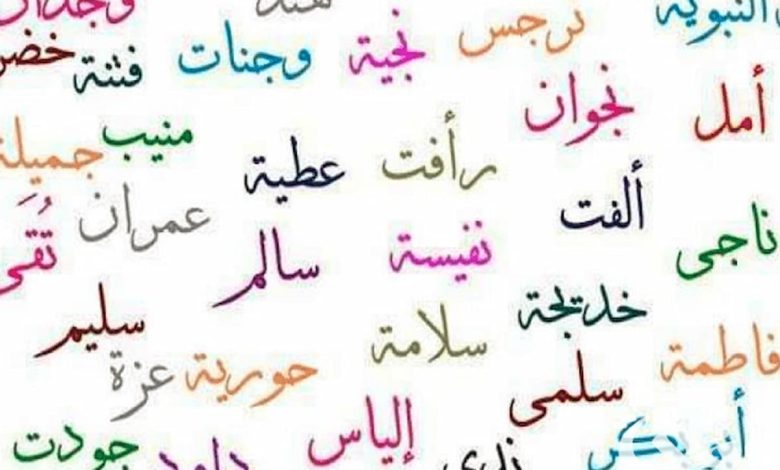 النبوية وجدان
نرجس نجية وجنات فتنة خضر
أمل نجوان
منيب جميلة
رأفت عطية
ألفت عمران
ناجى نفيسة سالم تُقَى
خديجة سليم
فاطمة سلامة حورية عزة
سلمى
أبو بكر إلياس جودت